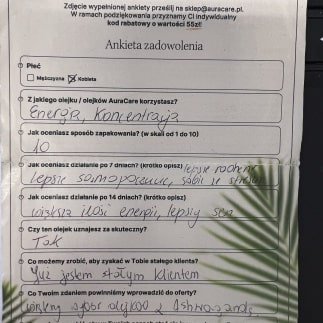 Zdjęcie wypełnionej ankiety prześlij na sklep@auracare.pl.
W ramach podziękowania przyznamy Ci indywidualny
kod rabatowy o wartości 55zł!
Ankieta zadowolenia
Płeć
Mężczyzna Kobieta
Z jakiego olejku / olejków AuraCare korzystasz?
Energia, Koncentracja
Jak oceniasz sposób zapakowania? (w skali od 1 do 10)
10
Jak oceniasz działanie po 7 dniach? (krótko opisz) lepsze
lepsze samopoczucie,
Jak oceniasz działanie po 14 dniach? (krótko opisz)
większa ilość energii, lepszy sen
Czy ten olejek uznajesz za skuteczny?
Tak
Co możemy zrobić, aby zyskać w Tobie stałego klienta?
Już jestem stałym klientem
Co Twoim zdaniem powinniśmy wprowadzić do oferty?
większy wybór olejków z Ashwagandą